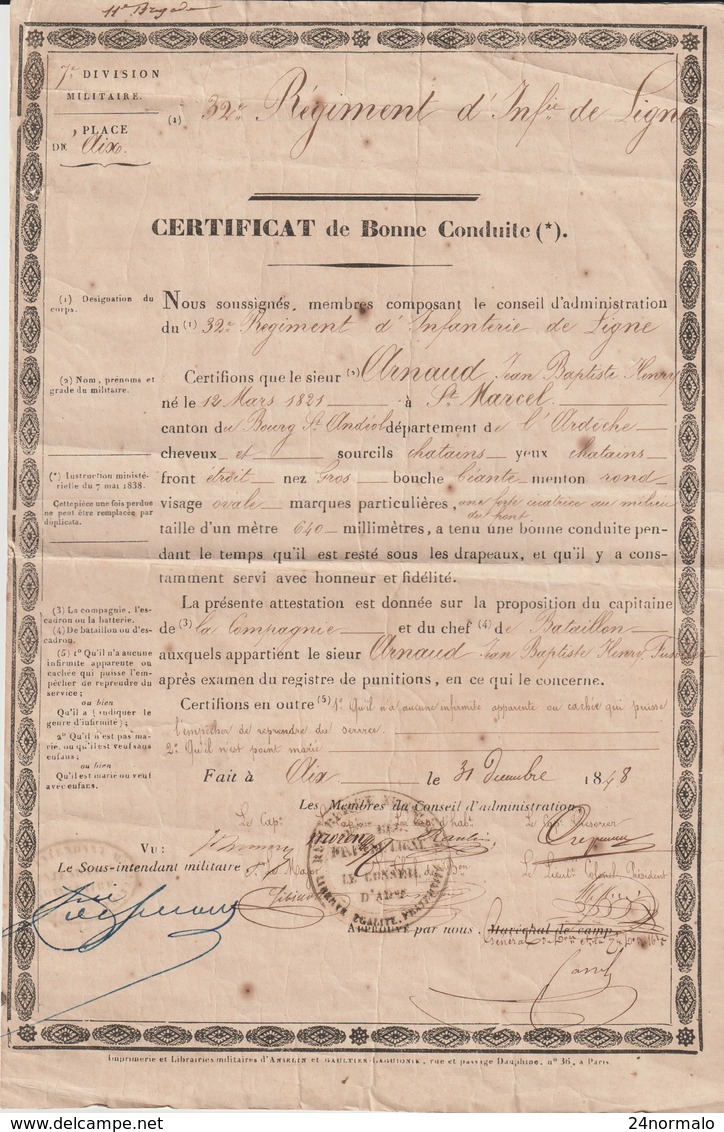 11e Brigade
7e DIVISION
MILITAIRE.
PLACE
DE Aix
(1) 32e Régiment d'Infie de Ligne
CERTIFICAT de Bonne Conduite (*).
(1) Désignation du
corps.
Nous soussignés, membres composant le conseil d'administration
du (1) 32e Régiment d'Infanterie de Ligne
(2) Nom, prénoms et
grade du militaire.
Certifions que le sieur (2) Arnaud Jean Baptiste Henry
né le 12 Mars 1821 à St Marcel
canton du Bourg St Andéol département de l'Ardèche
cheveux et sourcils chatains yeux chatains
(*) Instruction ministé-
rielle du 7 mai 1838.
Cette pièce une fois perdue
ne peut être remplacée par
duplicata.
front étroit nez Gros bouche béante menton rond
visage ovale marques particulières, une forte cicatrice au milieu
du front
taille d'un mètre 640 millimètres, a tenu une bonne conduite pen-
dant le temps qu'il est resté sous les drapeaux, et qu'il y a cons-
tamment servi avec honneur et fidélité.
(3) La compagnie, l'es-
cadron ou la batterie.
(4) De bataillon ou d'es-
cadron.
(5) 1° Qu'il n'a aucune
infirmité apparente ou
cachée qui puisse l'em-
pêcher de reprendre du
service;
ou bien
Qu'il a (indiquer le
genre d'infirmité);
2° Qu'il n'est pas ma-
rié, ou qu'il est veuf sans
enfans;
ou bien
Qu'il est marié ou veuf
avec enfans.
La présente attestation est donnée sur la proposition du capitaine
de (3) la Compagnie et du chef (4) de Bataillon
auxquels appartient le sieur Arnaud Jean Baptiste Henry, Fusilier
après examen du registre de punitions, en ce qui le concerne.
Certifions en outre (5) 1° Qu'il n'a aucune infirmité apparente ou cachée qui puisse
l'empêcher de reprendre du service
2° Qu'il n'est point marié
Fait à Aix le 31 Décembre 1848
Les Membres du Conseil d'administration,
Le Cap. Le Cap. d'habt. Le Cap. Trésorier
VU:
Le Sous-intendant militaire
Le Major
Le Lieutt Colonel Président
LE CONSEIL
D'ADon
LIBERTÉ, EGALITÉ, FRATERNITÉ
APPROUVÉ par nous, Maréchal de camp
Général
Imprimerie et Librairies militaires d'ANSELIN et GAULTIER-LAGUIONIE, rue et passage Dauphine, n° 36, à Paris.
delcampe.net
24normalo